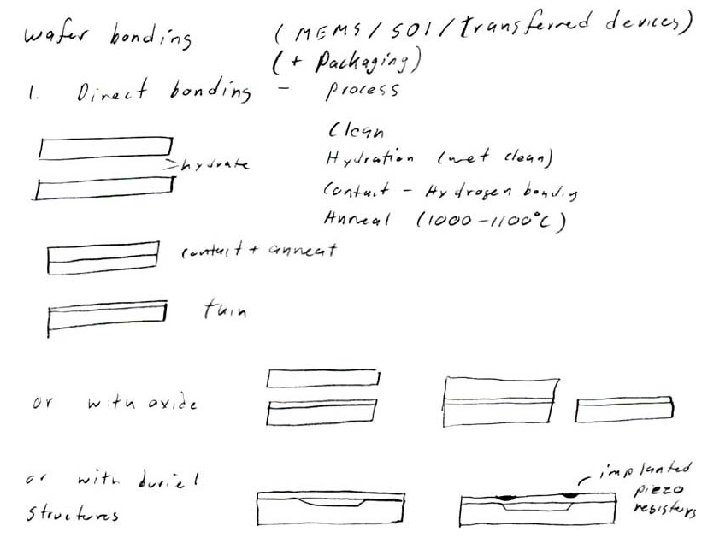 wafer bonding (MEMS/SOI/transferred devices)
(+ Packaging)
1. Direct bonding - process
Clean
hydrate
Hydration (wet clean)
Contact - Hydrogen bonding
Anneal (1000-1100°C)
contact + anneal
thin
or with oxide
or with buriel
structures
implanted
piezo
resisters